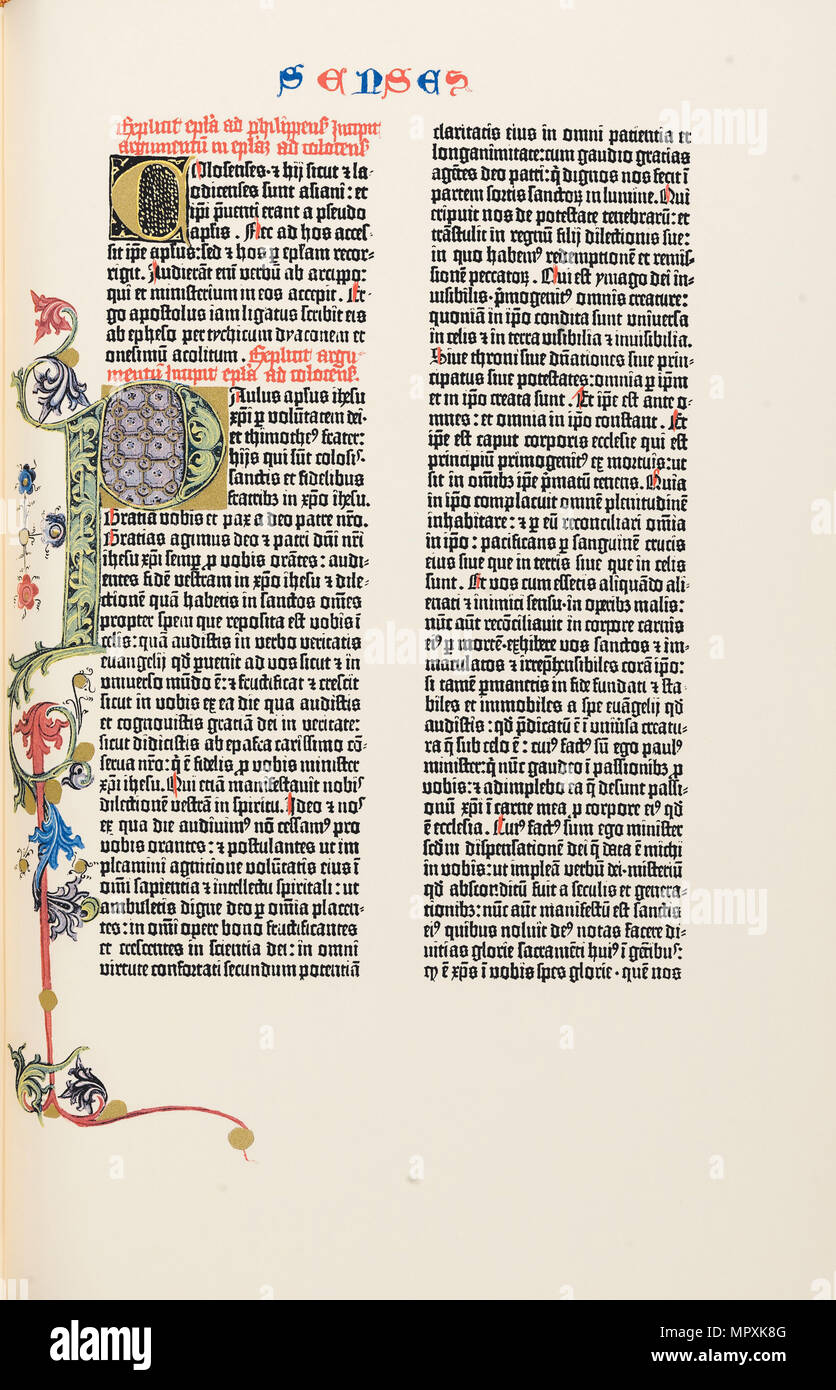 SENSES
Explicit epl'a ad philippens' Incipit
argumentū in epl'aʒ ad colocens'
Colosenses · ⁊ hij sicut ⁊ la-
odicenses sunt asiani : et
ip̄i p̄uenti erant a pseudo
aplis . Nec ad hos acces-
sit ip̄e apl'us: sed ⁊ hos ꝑ epl'am recor-
rigit . Audierāt em̄ verbū ab arcippo:
qui et ministeriū in eos accepit . Er-
go apostolus iam ligatus scribit eis
ab epheso per tychicum dyaconem et
onesimū acolitum . Explicit argu-
mentū Incipit epl'a ad colocens'.
Paulus apl'us ih̄esu
xp̄i ꝑ volūtatem dei ·
et thimothe⁹ frater:
hijs qui sūt colosis
sanctis et fidelibus
fratribʒ in xp̄o ih̄esu .
Gratia vobis et pax a deo patre nr̄o .
Gratias agimus deo ⁊ patri dn̄i nr̄i
ih̄esu xp̄i semꝑ ꝓ vobis orātes : audi-
entes fidē vestram in xp̄o ih̄esu ⁊ dile-
ctionē quā habetis in sanctos om̄es
propter spem que reposita est vobis ī
celis : quā audistis in verbo veritatis
euangelij qd̄ ꝑuenit ad vos sicut ⁊ in
vniuerso mūdo ē : ⁊ fructificat ⁊ crescit
sicut in vobis ex ea die qua audistis
et cognouistis gratiā dei in veritate:
sicut didicistis ab epafra carissimo cō-
seruo nr̄o : q̄ ē fidelis ꝓ vobis minister
xp̄i ih̄esu . Qui etiā manifestauit nobis
dilectionē vestrā in spiritu . Ideo ⁊ nos
ex qua die audiuim⁹ nō cessam⁹ pro
vobis orantes : ⁊ postulantes ut im-
pleamini agnitione volūtatis eius ī
om̄i sapientia ⁊ intellectu spiritali : ut
ambuletis digne deo ꝑ om̄ia placen-
tes : in om̄i opere bono fructificantes
et crescentes in scientia dei : in omni
virtute confortati secundum potentiā
claritatis eius in omni patientia et
longanimitate: cum gaudio gratias
agētes deo patri : q̄ dignos nos fecit ī
partem sortis sanctoꝝ in lumine . Qui
eripuit nos de potestate tenebrarū : et
trāstulit in regnū filij dilectionis sue :
in quo habem⁹ redemptionē et remis-
sionē peccatoꝝ . Qui est ymago dei in-
uisibilis · p̄mogenit⁹ omnis creature:
quoniā in ip̄o condita sunt vniuersa
in celis ⁊ in terra visibilia ⁊ inuisibilia.
Siue throni siue dn̄ationes siue prin-
cipatus siue potestates: omnia ꝑ ip̄m
et in ip̄o creata sunt . Et ip̄e est ante o-
mnes : et omnia in ip̄o constant . Et
ip̄e est caput corporis ecclesie qui est
principiū primogenit⁹ ex mortuis: ut
sit in om̄ibʒ ip̄e p̄matū tenens . Quia
in ip̄o complacuit omnē plenitudinē
inhabitare : ⁊ ꝑ eū reconciliari om̄ia
in ip̄o : pacificans ꝑ sanguinē crucis
eius siue que in terris siue que in celis
sunt . Et vos cum essetis aliquādo ali-
enati ⁊ inimici sensu · in operibʒ malis:
nūc aūt recōciliauit in corpore carnis
ei⁹ ꝑ mortē · exhibere vos sanctos ⁊ im-
maculatos ⁊ irrep̄hensibiles corā ip̄o:
si tamē ꝑmanetis in fide fundati ⁊ sta-
biles et immobiles a spe euāgelij qd̄
audistis: qd̄ p̄dicatū ē ī vniūsa creatu-
ra q̄ sub celo ē : cui⁹ fact⁹ sū ego paul⁹
minister: q̄ nūc gaudeo ī passionibʒ ꝓ
vobis: ⁊ adimpleo ea q̄ desunt passi-
onū xp̄i ī carne mea ꝓ corpore ei⁹ qd̄
ē ecclesia . Cui⁹ fact⁹ sum ego minister
scd̄m dispensationē dei q̄ data ē michi
in vobis : ut impleā verbū dei · misteriū
qd̄ absconditū fuit a seculis et genera-
tionibʒ: nūc aūt manifestū est sanctis
ei⁹ quibus voluit de⁹ notas facere di-
uitias glorie sacramēti hui⁹ ī gētibus:
qd̄ ē xp̄s ī vobis spes glorie · quē nos
alamy
Image ID: MPXK8G
www.alamy.com